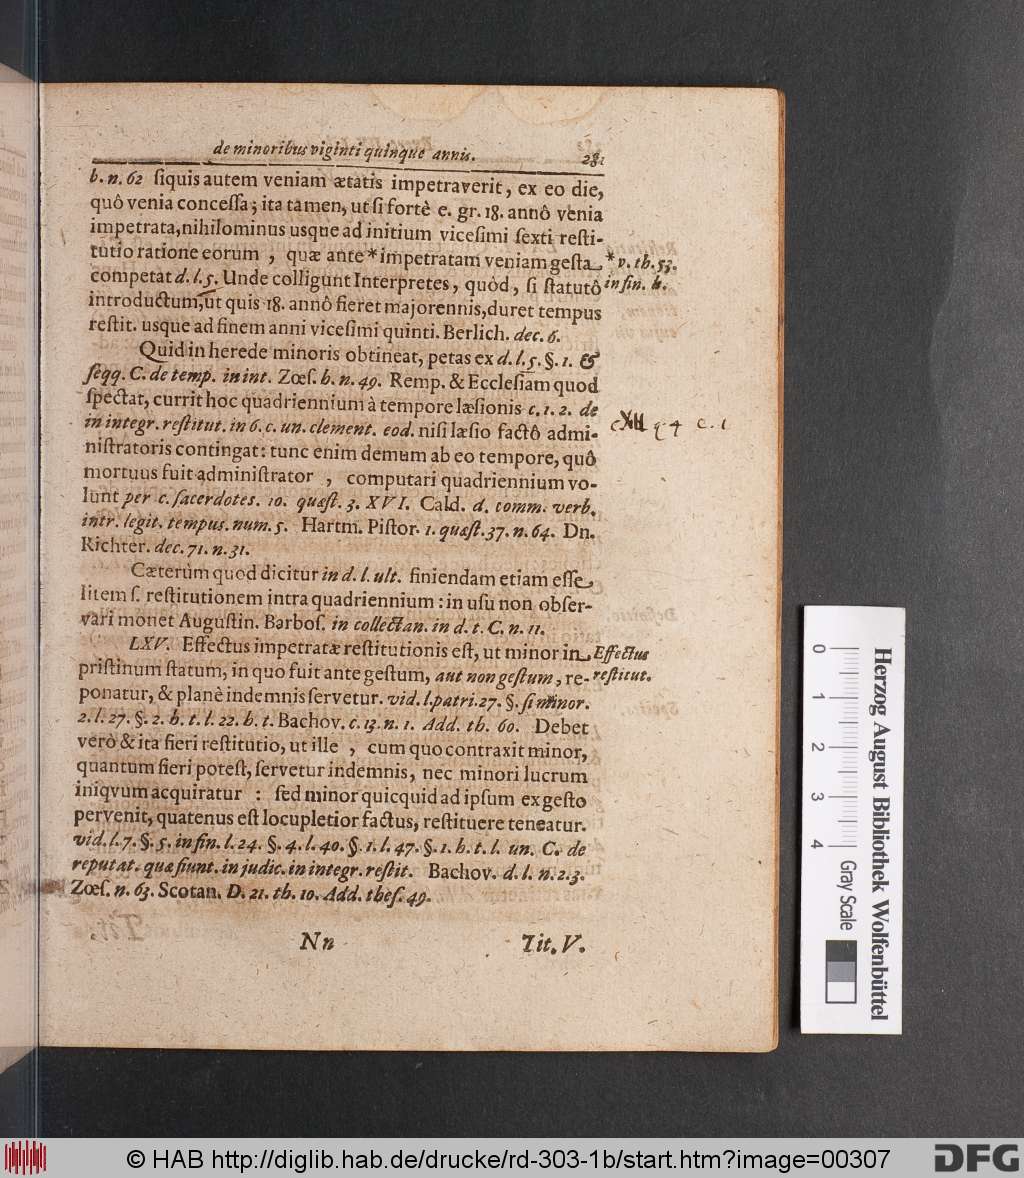 de minoribus viginti quinque annis. 281
h. n. 62 ſiquis autem veniam ætatis impetraverit, ex eo die,
quô venia conceſſa; ita tamen, ut ſi fortè e. gr. 18. annô venia
impetrata, nihilominus usque ad initium viceſimi ſexti reſti-
tutio ratione eorum , quæ ante * impetratam veniam geſta
* v. th. 53.
competat d. l. 5. Unde colligunt Interpretes, quòd, ſi ſtatutô
in fin. h.
introductum, ut quis 18. annô fieret majorennis, duret tempus
reſtit. usque ad finem anni viceſimi quinti. Berlich. dec. 6.
Quid in herede minoris obtineat, petas ex d. l. 5. §. 1. &
ſeqq. C. de temp. in int. Zœſ. h. n. 49. Remp. & Eccleſiam quod
ſpectat, currit hoc quadriennium à tempore læſionis c. 1. 2. de
in integr. reſtitut. in 6. c. un. clement. eod. niſi læſio factô admi-
c. XII q 4 c. 1
niſtratoris contingat: tunc enim demum ab eo tempore, quô
mortuus fuit adminiſtrator , computari quadriennium vo-
lunt per c. ſacerdotes. 10. quæſt. 3. XVI. Cald. d. comm. verb.
intr. legit. tempus. num. 5. Hartm. Piſtor. 1. quæſt. 37. n. 64. Dn.
Richter. dec. 71. n. 31.
Cæterùm quod dicitur in d. l. ult. finiendam etiam eſſe
litem ſ. reſtitutionem intra quadriennium: in uſu non obſer-
vari monet Auguſtin. Barboſ. in collectan. in d. t. C. n. 11.
LXV. Effectus impetratæ reſtitutionis eſt, ut minor in
Effectus
priſtinum ſtatum, in quo fuit ante geſtum, aut non geſtum, re-
reſtitut.
ponatur, & planè indemnis ſervetur. vid. l. patri. 27. §. ſi minor.
2. l. 27. §. 2. h. t. l. 22. h. t. Bachov. c. 13. n. 1. Add. th. 60. Debet
verò & ita fieri reſtitutio, ut ille , cum quo contraxit minor,
quantum fieri poteſt, ſervetur indemnis, nec minori lucrum
iniqvum acquiratur : ſed minor quicquid ad ipſum ex geſto
pervenit, quatenus eſt locupletior factus, reſtituere teneatur.
vid. l. 7. §. 5. in fin. l. 24. §. 4. l. 40. §. 1. l. 47. §. 1. h. t. l. un. C. de
reputat. quæ fiunt. in judic. in integr. reſtit. Bachov. d. l. n. 2. 3.
Zœſ. n. 63. Scotan. D. 21. th. 10. Add. theſ. 49.
Nn Tit. V.
0 1 2 3 4 Gray Scale
Herzog August Bibliothek Wolfenbüttel
© HAB http://diglib.hab.de/drucke/rd-303-1b/start.htm?image=00307
DFG